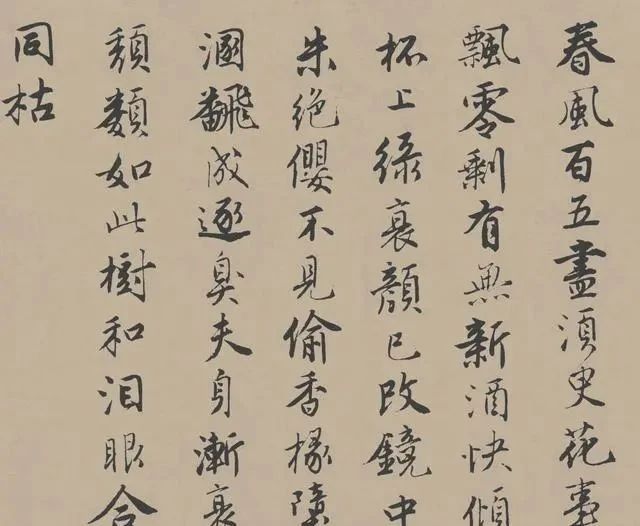 春風百五盡湏臾花事
飄零剩有無新酒快傾
杯上綠衰顏已改鏡中
朱絕纓不見偷香掾墮
溷飜成逐臭夫身漸衰
頹類如此樹和泪眼合
同枯